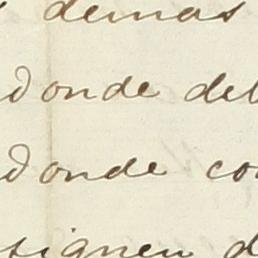 demas
donde deb
donde co
signen d